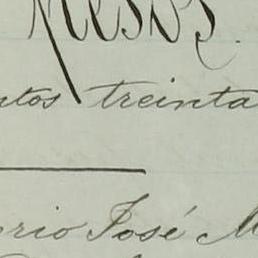 mesos
ntos treinta
rio José M